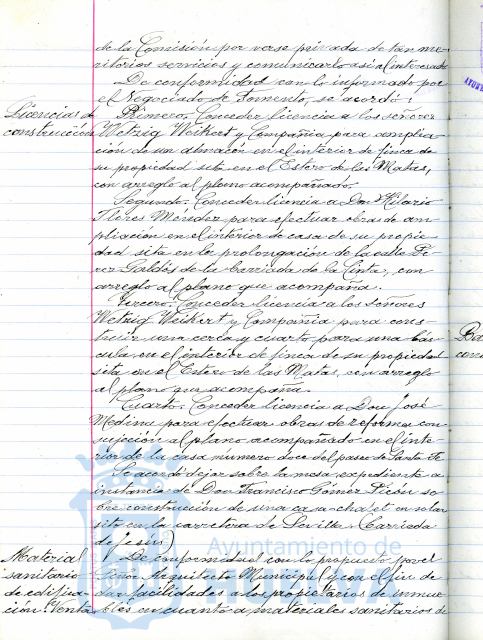 de la Comisión por verse privada de tan me-
ritorios servicios y comunicarlo así al interesado
De conformidad con lo informado por
el Negociado de Fomento, se acordó:
Licencias de
construcción
Primero. Conceder licencia a los señores
Wetzig Weikert y Compañía para amplia-
ción de un almacén en el interior de finca de
su propiedad sita en el Estero de las Matas,
con arreglo al plano acompañado.
Segundo. Conceder licencia a Don Hilario
Flores Méndez para efectuar obras de am-
pliación en el interior de casa de su propie-
dad sita en la prolongación de la calle Pé-
rez Galdós de la barriada de la Cinta, con
arreglo al plano que acompaña.
Tercero. Conceder licencia a los señores
Wetzig Weikert y Compañía para cons-
truir una cerca y cuarto para una bás-
cula, en el interior de finca de su propiedad
sita en el Estero de las Matas, con arreglo
al plano que acompaña.
Cuarto. Conceder licencia a Don José
Medina para efectuar obras de reforma con
sujeción al plano acompañado en el inte-
rior de la casa número doce del paseo de Santa Fe
Se acordó dejar sobre la mesa expediente a
instancia de Don Francisco Gómez Picón so-
bre construcción de una casa-chalet en solar
sito en la carretera de Sevilla (Barriada
de Jesús)
Material
sanitario
de edifica-
ción. Venta
De conformidad con lo propuesto por el
Señor Arquitecto Municipal y con el fin de
dar facilidades a los propietarios de inmue-
bles en cuanto a materiales sanitarios de
Ayuntamiento de